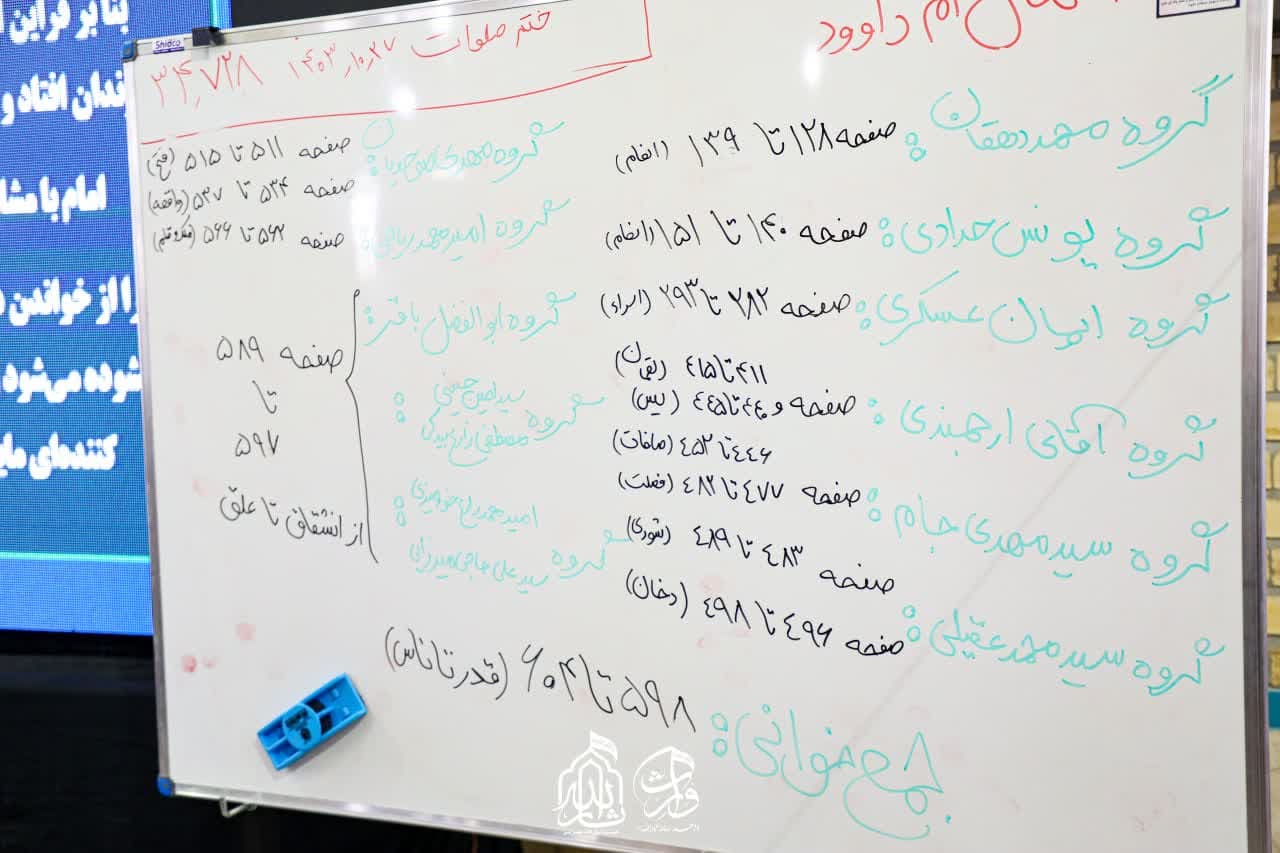 ام داوود
ختم صلوات ۱۴۰۳,۱۰,۲۷
۳۴,۷۲۸
Shidco
گروه محمد دهقان : صفحه ۱۲۸ تا ۱۳۹ (انعام)
گروه یونس حدادی : صفحه ۱۴۰ تا ۱۵۱ (انعام)
گروه ایمان عسکری : صفحه ۲۸۲ تا ۲۹۳ (اسراء)
۴۱۱ تا ۴۱۵ (لقمان)
گروه آقای ارجمندی : صفحه و ۴۴۰ تا ۴۴۵ (یس)
۴۴۶ تا ۴۵۲ (صافات)
گروه سید مهدی جام : صفحه ۴۷۷ تا ۴۸۲ (فصلت)
صفحه ۴۸۳ تا ۴۸۹ (شوری)
گروه سید محمد عقیلی : صفحه ۴۹۶ تا ۴۹۸ (دخان)
گروه مهدی : صفحه ۵۱۱ تا ۵۱۵ (فتح)
صفحه ۵۳۴ تا ۵۳۷ (واقعه)
گروه امیرمحمد : صفحه ۵۶۲ تا ۵۶۶ (ملک و قلم)
گروه ابوالفضل باقر :
گروه سید امین حسینی
مصطفی :
گروه امیرمحمد :
سید علی حاجی میرزایی
صفحه ۵۸۹
تا
۵۹۷
از انشقاق تا علق
جمع خوانی : ۵۹۸ تا ۶۰۴ (قدر تا ناس)
بنا بر قراین
امام با مشا
را از خواندن
شوده می‌شود
کننده‌ای ما